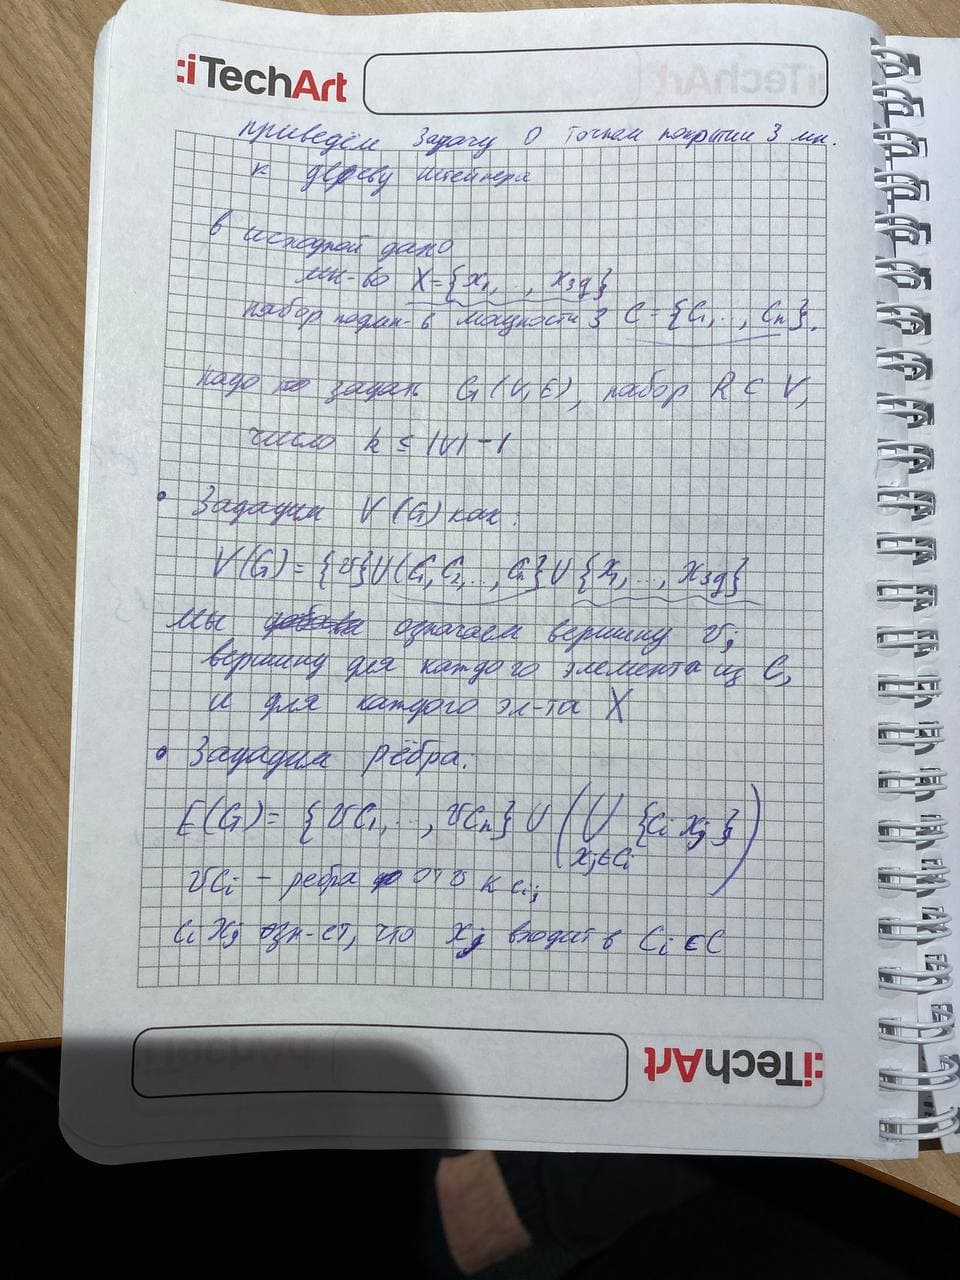 :iTechArt
приведём задачу о точном покрытии 3 мн.
к дереву штейнера
в исходной дано
мн-во X={x₁,..,x₃q}
набор подмн-в мощности 3 C={C₁,..,Cₙ}.
надо задан G(V,E), набор R⊂V,
число k ≤ |V|-1
• Зададим V(G) как:
V(G)={v}U{C₁,C₂,..,Cₙ}U{x₁,..,x₃q}
мы означаем вершину v;
вершину для каждого элемента из C,
и для каждого эл-та X
• Зададим рёбра:
E(G)={vC₁,..,vCₙ}U(U{Cᵢxⱼ})
xⱼ∈Cᵢ
vCᵢ - ребра от v к cᵢ;
cᵢxⱼ озн-ет, что xⱼ входит в Cᵢ∈C
:iTechArt